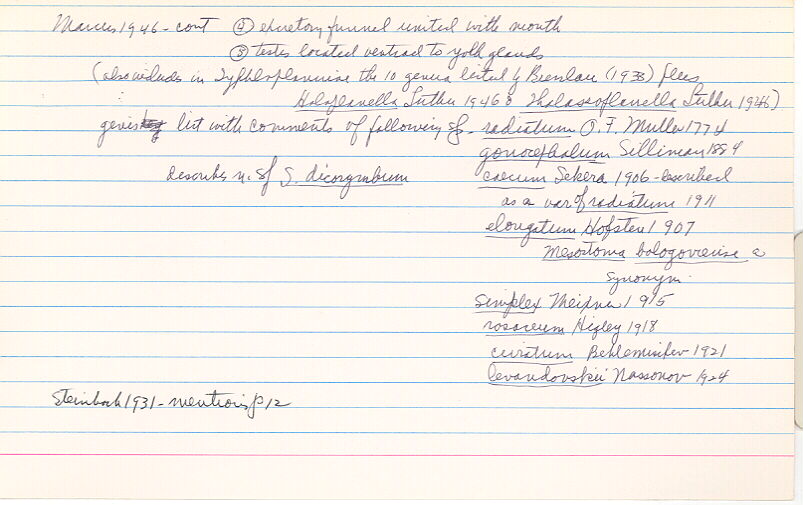 Marcus 1946 - cont ② excretory funnel united with mouth
③ testes located ventrad to yolk glands
(also includes in Typhloplaninae the 10 genera listed by Bresslau (1933) plus
Haloplanella Luther 1946 & Thalassoplanella Luther 1946)
gives list with comments of following sp. radiatum O. F. Muller 1774
gonocephalum Silliman 1884
describes n. sp S. dicorymbum caecum Sekera 1906 - described
as a var of radiatum 1911
elongatum Hofsten 1907
Mesostoma bologoviense a
synonym.
simplex Meixner 1915
rosaceum Higley 1918
curvatum Beklemischev 1921
levandovskii Nassonov 1924
Steinbock 1931 - mentions p 12